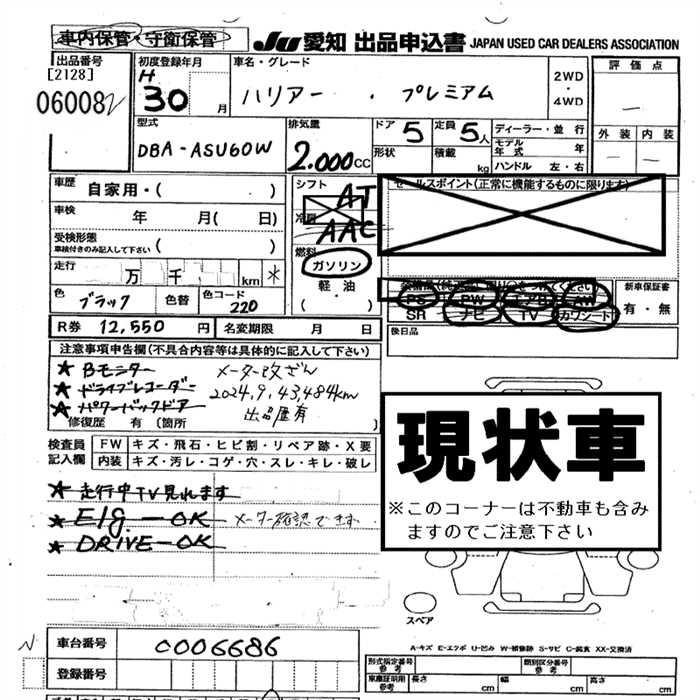 車内保管・守衛保管
JU 愛知 出品申込書 JAPAN USED CAR DEALERS ASSOCIATION
出品番号
[2128]
060082
初度登録年月
H 30 月
車名・グレード
ハリアー . プレミアム
2WD
・
4WD
評価点
—
外装 内装
— —
型式
DBA-ASU60W
排気量
2.000 CC
ドア 5
形状
定員 5 人
積載 kg
ディーラー・並行
モデル年式 年
ハンドル 左・右
車歴 自家用・( )
車検 年 月( 日)
受検形態
車検付きのみ記入して下さい ( )
走行 万 千 km *
色 ブラック 色替 色コード 220
シフト AT
冷房 AAC
燃料
ガソリン
軽油
( )
セールスポイント(正常に機能するものに限ります)
PS PW エアB AW
SR ナビ TV カワシート
新車保証書
有・無
後日品
R券 12,550 円 名変期限 月 日
注意事項申告欄(不具合内容等は具体的に記入して下さい)
★Bモニター メーター改ざん
★ドライブレコーダー 2024,9,43,484km
★パワーバックドア 出品歴有
修復歴 有(箇所
検査員記入欄
FW キズ・飛石・ヒビ割・リペア跡・X要
内装 キズ・汚レ・コゲ・穴・スレ・キレ・破レ
★走行中TV見れます
★E/g.-OK メーター確認できず
★DRIVE-OK
現状車
※このコーナーは不動車も含みますのでご注意下さい
スペア
A-キズ E-エクボ U-凹み W-補修跡 S-サビ C-腐食 XX-交換済
車台番号 0006686
登録番号
型式指定番号
参考
類別区分番号
参考
車庫証明用
参考
長さ cm 幅 cm 高さ cm